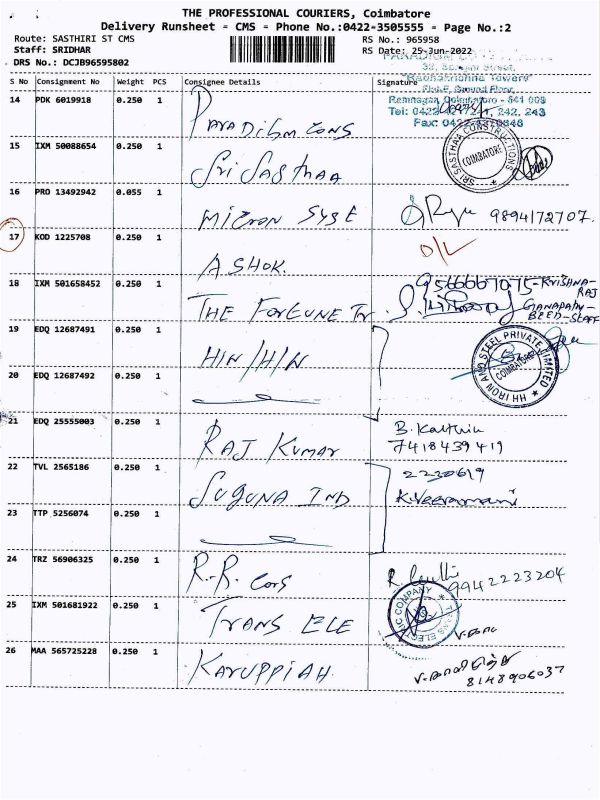 THE PROFESSIONAL COURIERS, Coimbatore
Delivery Runsheet - CMS - Phone No.:0422-3505555 - Page No.:2
Route: SASTHIRI ST CMS
RS No.: 965958
Staff: SRIDHAR
RS Date: 25-Jun-2022
DRS No.: DCJB96595802
S No Consignment No Weight PCS Consignee Details Signature
"Radhakrishna Towers"
Ground Floor,
Ramnagar, Coimbatore - 641 009
14 PDK 6019918 0.250 1 PARADIGM CONS
15 IXM 50088654 0.250 1 SRI SASTHAA
SRI SASTHAA CONSTRUCTIONS
COIMBATORE
16 PRO 13492942 0.055 1 MICRON SYSE
9894172707.
17 KOD 1225708 0.250 1 ASHOK.
D/L
18 IXM 501658452 0.250 1 THE FORTUNE TR
KRISHNA-
RAJ
GANAPATHY-
BEED-STAFF
19 EDQ 12687491 0.250 1 HIN/HIN
HH IRON AND STEEL PRIVATE LIMITED
COIMBATORE
20 EDQ 12687492 0.250 1
21 EDQ 25555003 0.250 1 RAJ KUMAR
B. Karthik
7418439419
22 TVL 2565186 0.250 1 SUGUNA IND
2230619
K.Veeramani
23 TTP 5256074 0.250 1
24 TRZ 56906325 0.250 1 R.R. CONS
9942223204
25 IXM 501681922 0.250 1 TRANS ELE
TRANS ELECTRIC COMPANY
26 MAA 565725228 0.250 1 KARUPPIAH
8148906037